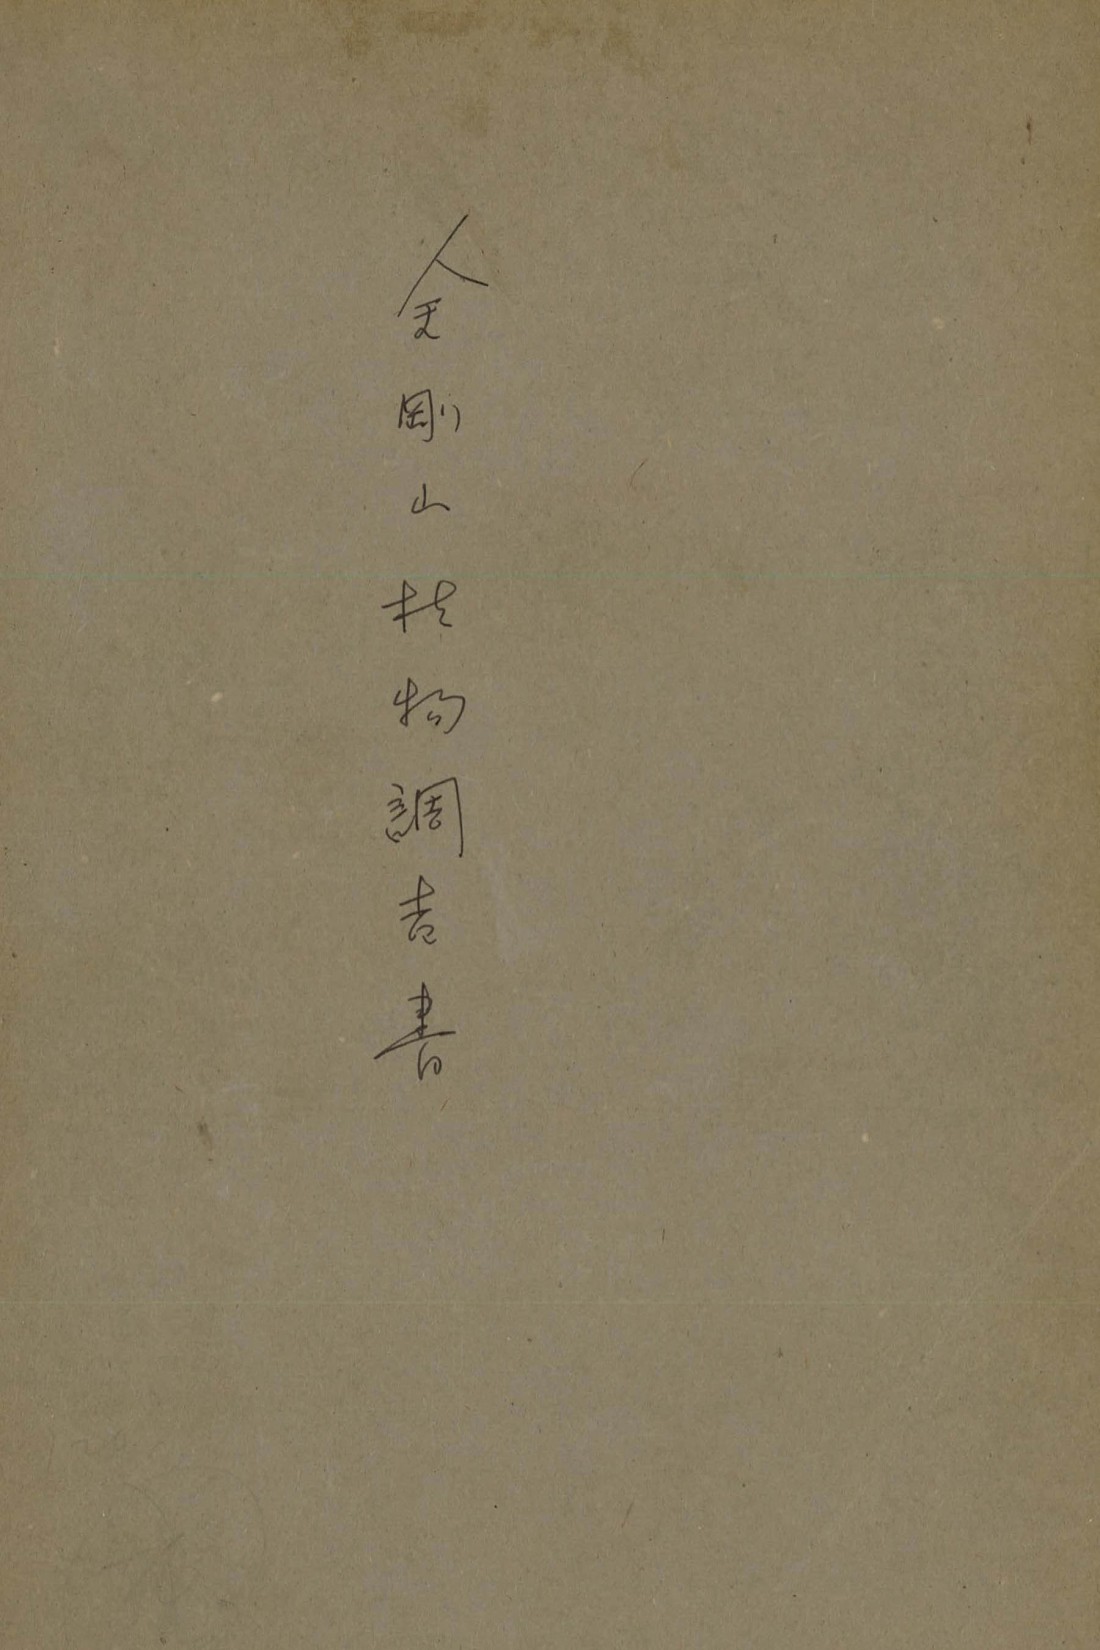 金剛山植物調査書